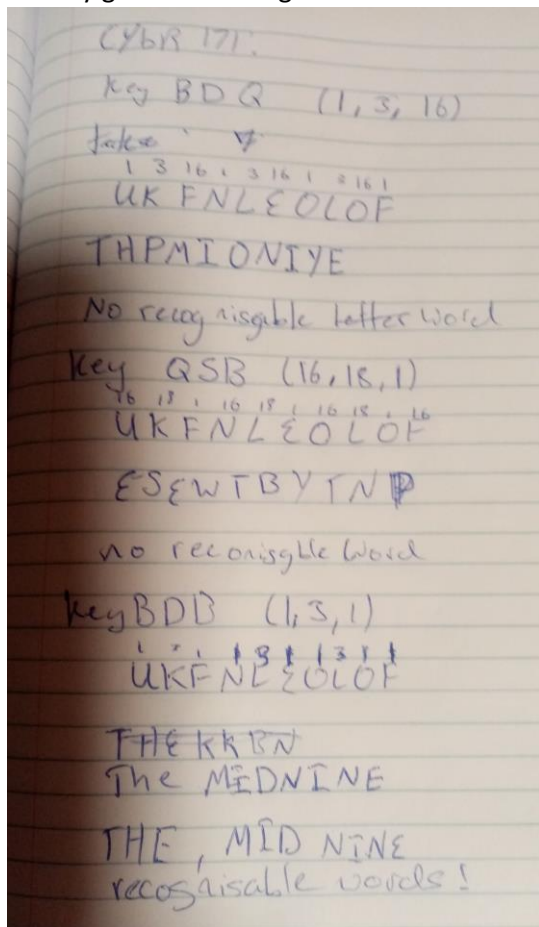 CYBR 171.
Key BDQ (1, 3, 16)
1 3 16 1 3 16 1 3 16 1
UKFNLEOLOF
THPMIONIYE
No recognisable letter word
Key QSB (16, 18, 1)
16 18 1 16 18 1 16 18 1 16
UKFNLEOLOF
ESEWTBYTNP
no reconisgble word
Key BDB (1, 3, 1)
1 3 1 1 3 1 1 3 1 1
UKFNLEOLOF
THEKKBN
The MIDNINE
THE, MID NINE
recognisable words!